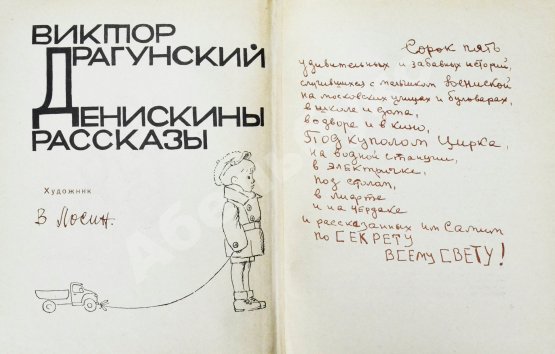 ВИКТОР
ДРАГУНСКИЙ
ДЕНИСКИНЫ
РАССКАЗЫ
Художник
В Лосин.
Сорок пять
удивительных и забавных историй,
случившихся с мальчиком Дениской
на московских улицах и бульварах,
в школе и дома,
во дворе и в кино,
под куполом цирка,
на водной станции,
в электричке,
под столом,
в лифте
и на чердаке
и рассказанных им самим
по СЕКРЕТУ
ВСЕМУ СВЕТУ!